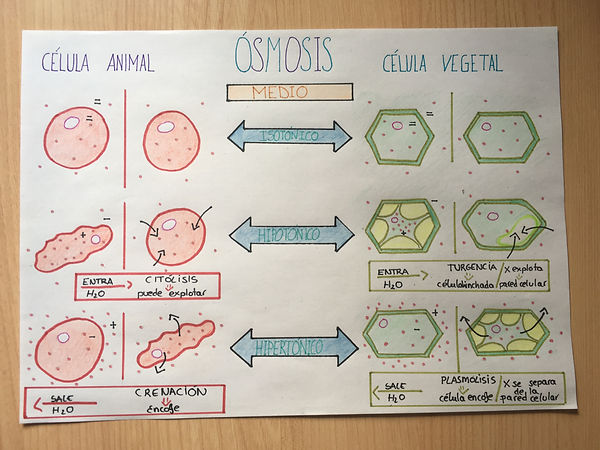 ÓSMOSIS
CÉLULA ANIMAL
CÉLULA VEGETAL
MEDIO
ISOTÓNICO
=
=
=
=
HIPOTÓNICO
-
+
-
+
ENTRA H₂O
CITÓLISIS
puede explotar
ENTRA H₂O
TURGENCIA
célula hinchada
X explota
pared celular
HIPERTÓNICO
+
-
+
-
SALE H₂O
CRENACIÓN
encoge
SALE H₂O
PLASMOLISIS
célula encoge
X se separa
de la
pared celular